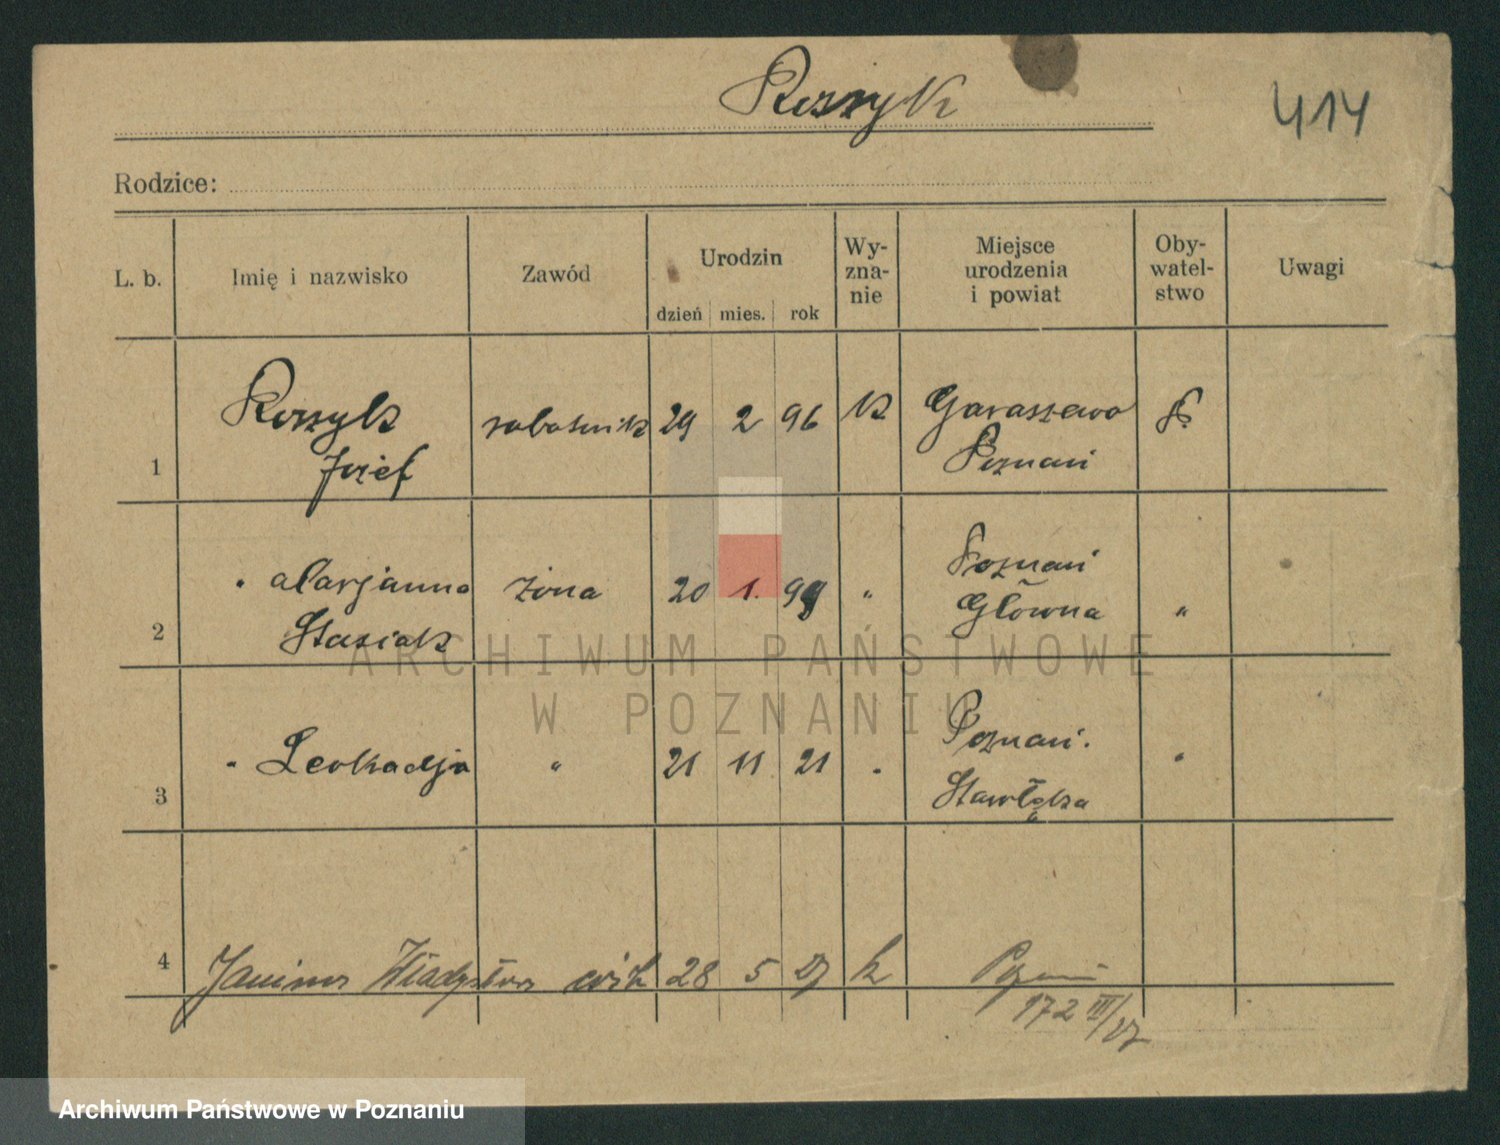 Roszyk
414
Rodzice:
L. b.
Imię i nazwisko
Zawód
Urodzin
dzień mies. rok
Wy-
zna-
nie
Miejsce
urodzenia
i powiat
Oby-
watel-
stwo
Uwagi
1
Roszyk
Józef
robotnik
29 2 96
k
Garaszewo
Poznań
P.
2
" Marjanna
Stasiak
żona
20 1. 99
"
Poznań
Główna
"
3
" Leokadja
"
21 11 21
"
Poznań.
Starołęka
"
4
Janina Władysława córk 28 5 27 k Poznań
172 III/27
ARCHIWUM PAŃSTWOWE
W POZNANIU
Archiwum Państwowe w Poznaniu